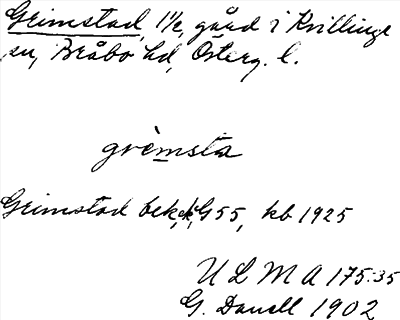 Grimstad, 1 1/2, gård i Kvillinge
sn, Bråbo hd, Österg. l.
grèmsta
Grimstad bek, G 55, kb 1925
U L M A 175:35
G. Danell 1902